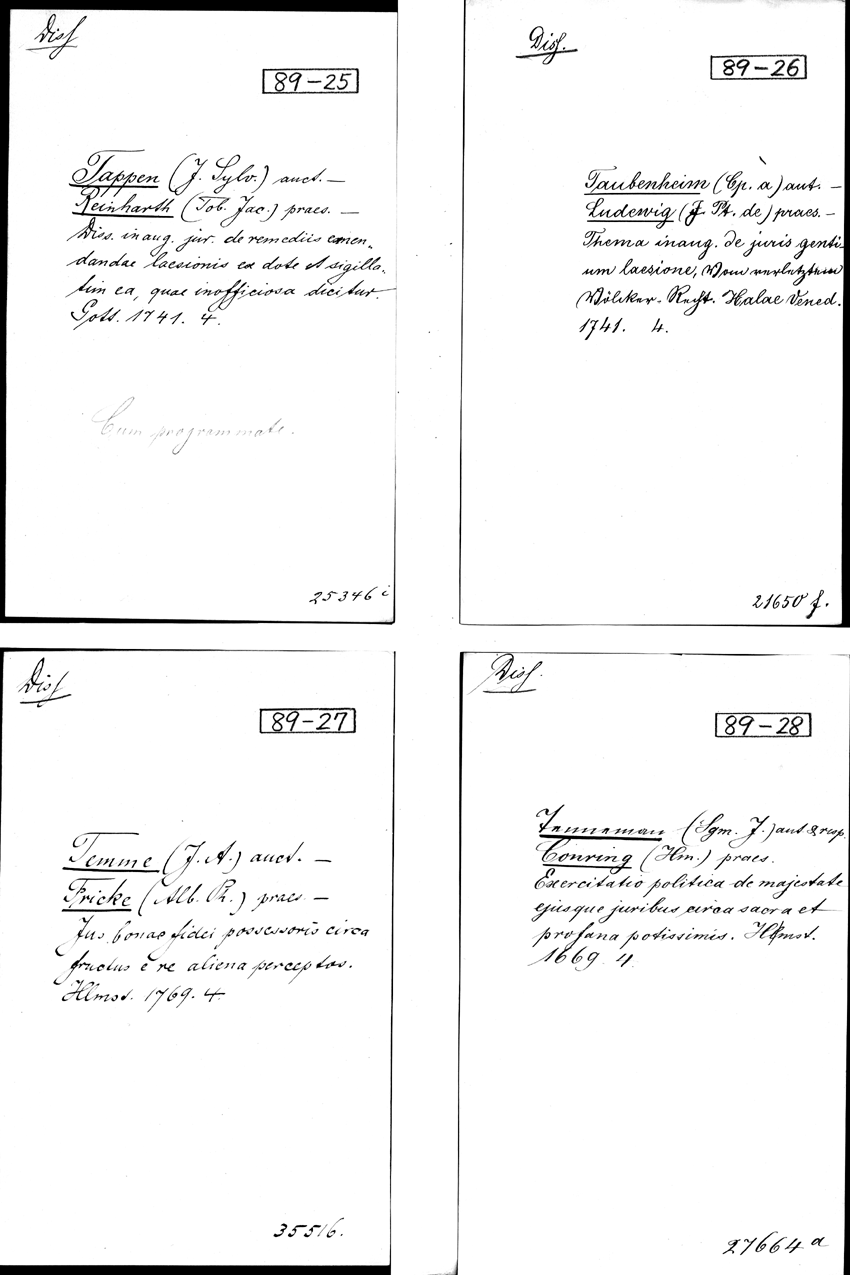 Diss
89-25
Tappen (J. Sylv.) auct. —
Reinharth (Tob. Jac.) praes. —
Diss. inaug. jur. de remediis emen-
dandae laesionis ex dote et sigilla-
tim ea, quae inofficiosa dicitur.
Gott. 1741. 4.
Cum programmate.
25346 i
Diss.
89-26
Taubenheim (Cp. à) aut. —
Ludewig (J. Pt. de) praes. —
Thema inaug. de juris genti-
um laesione, Vom verletztem
Völcker-Recht. Halae Vened.
1741. 4.
21650 f.
Diss
89-27
Temme (J. A.) auct. —
Fricke (Alb. Ph.) praes —
Jus bonae fidei possessoris circa
fructus e re aliena perceptos.
Hlmst. 1769. 4.
35516.
Diss.
89-28
Tenneman (Sgm. J.) aut & resp.
Conring (Hm.) praes.
Exercitatio politica de majestate
ejusque juribus circa sacra et
profana potissimis. Hlmst.
1669 4.
27664 a